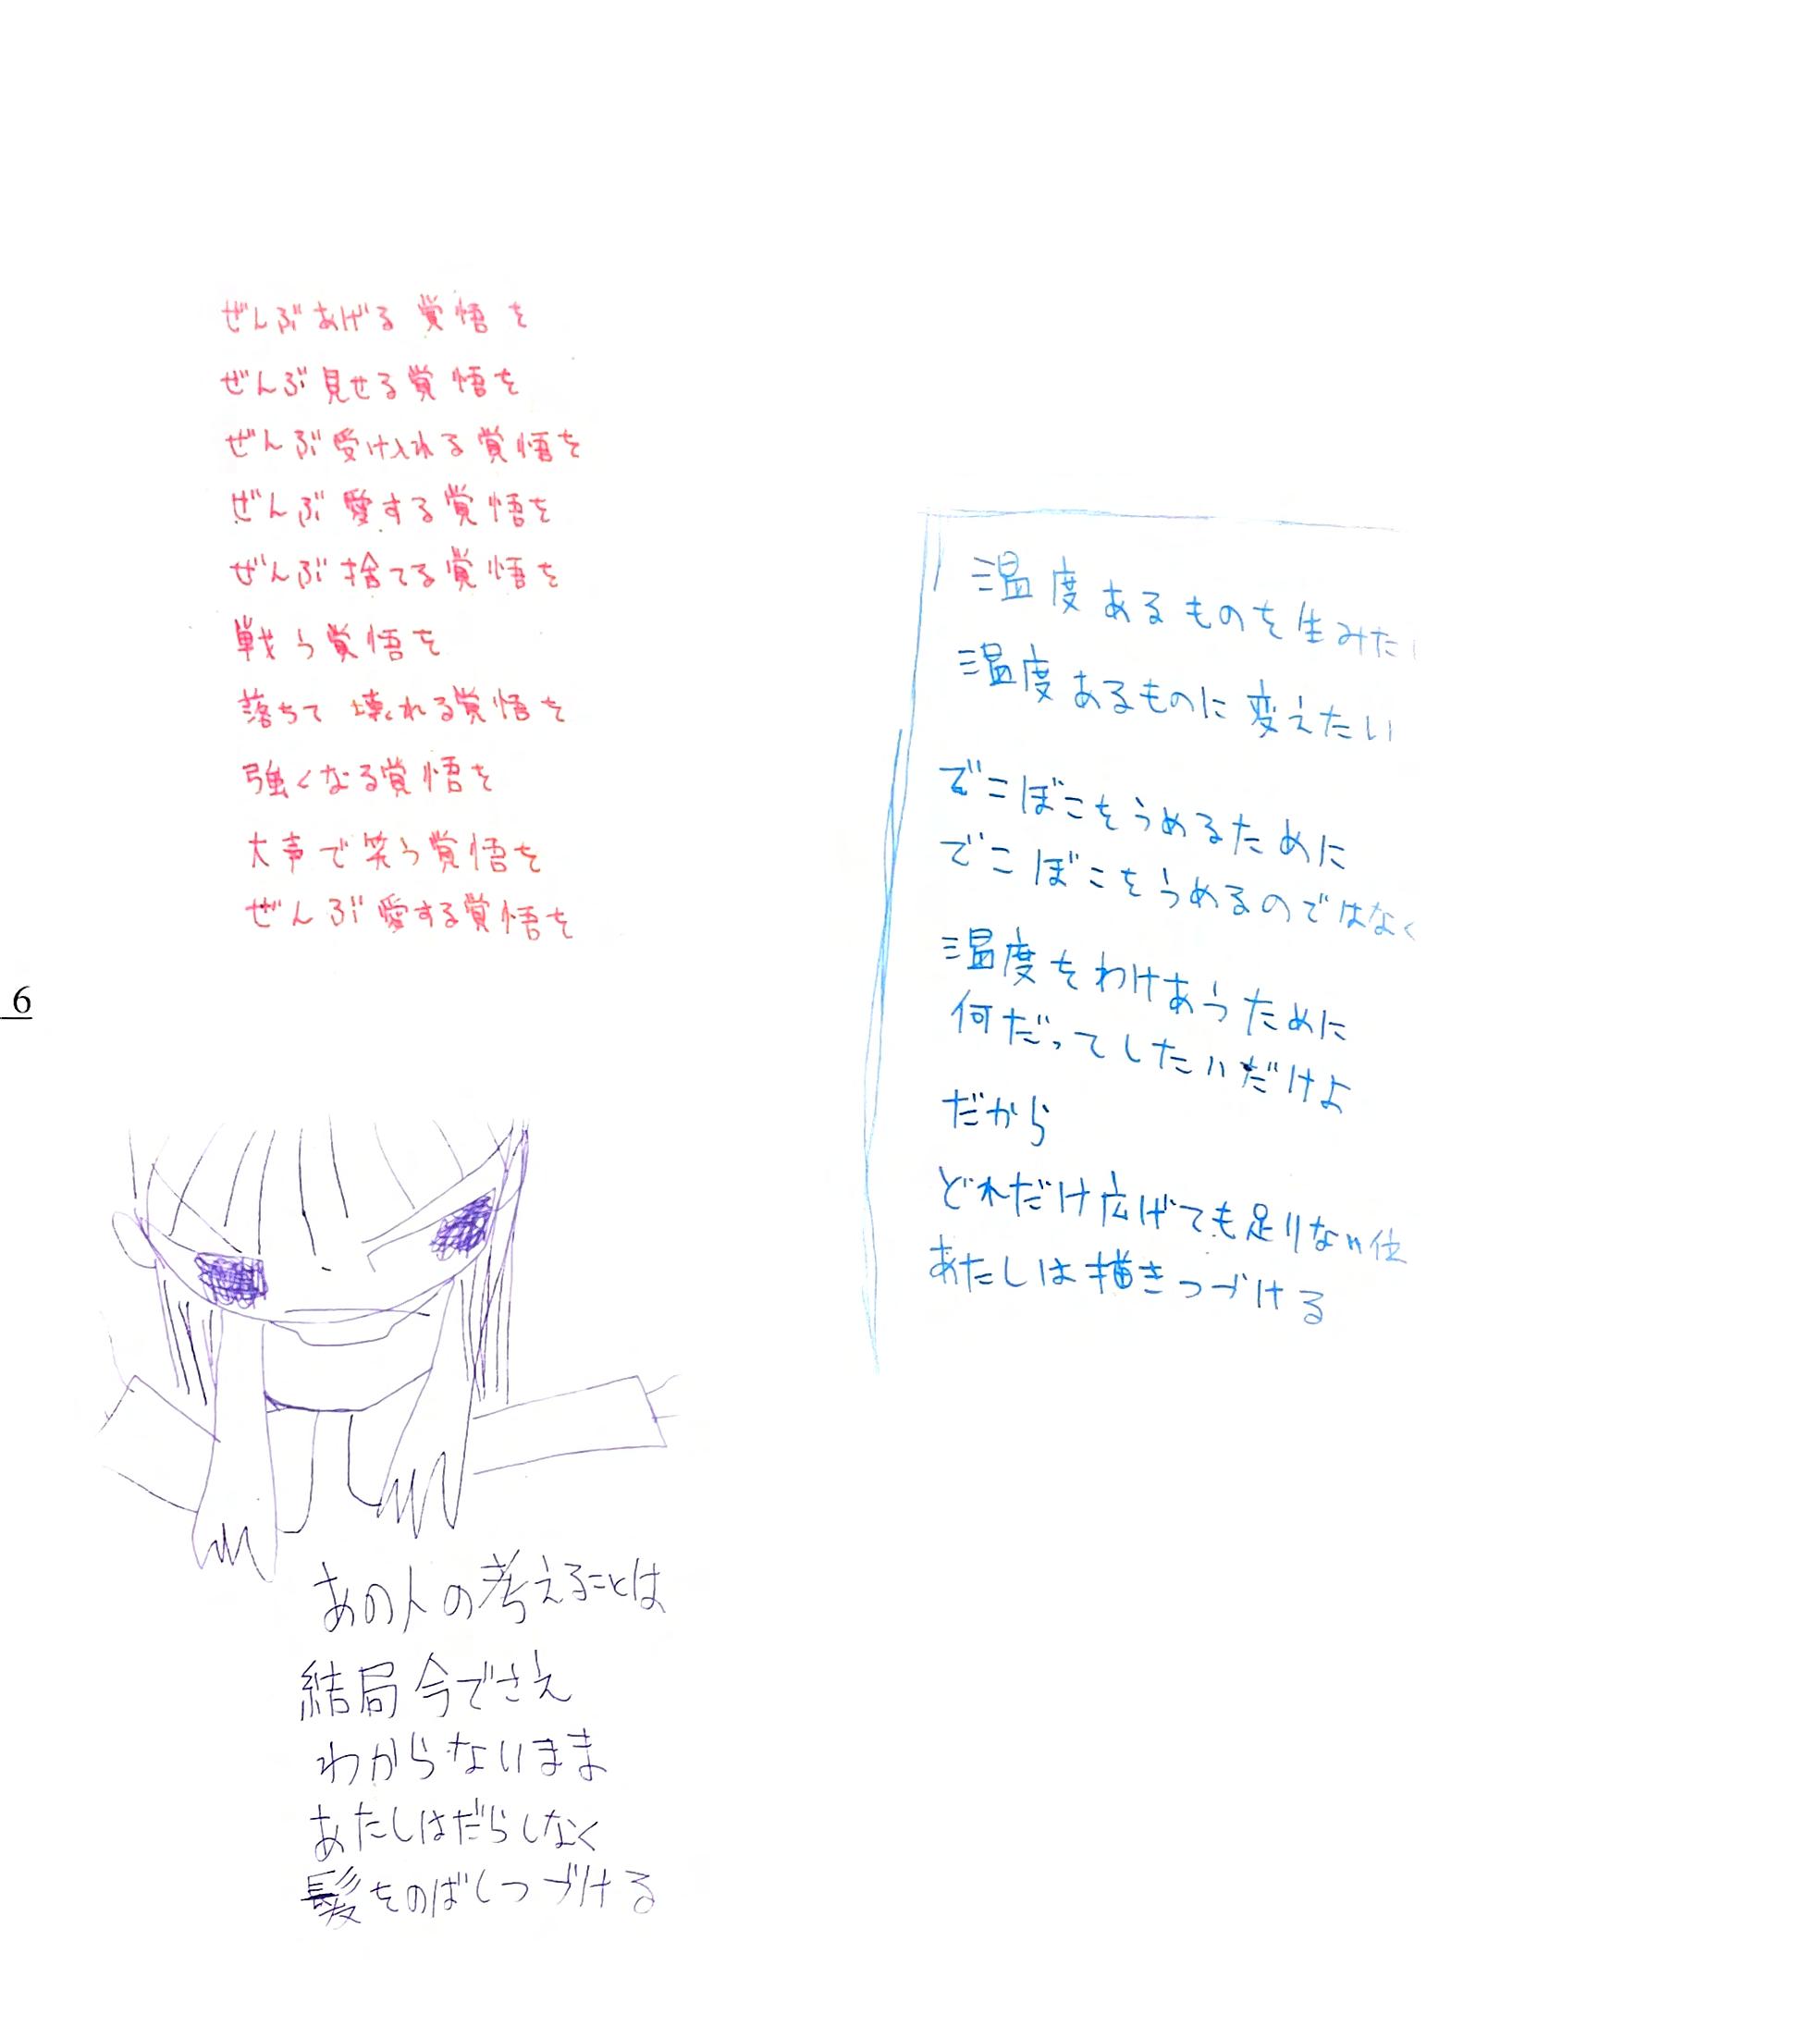 ぜんぶあげる覚悟を
ぜんぶ見せる覚悟を
ぜんぶ受け入れる覚悟を
ぜんぶ愛する覚悟を
ぜんぶ捨てる覚悟を
戦う覚悟を
落ちて壊れる覚悟を
強くなる覚悟を
大声で笑う覚悟を
ぜんぶ愛する覚悟を
6
あの人の考えることは
結局今でさえ
わからないまま
あたしはだらしなく
髪をのばしつづける
温度あるものを生みたい
温度あるものに変えたい
でこぼこをうめるために
でこぼこをうめるのではなく
温度をわけあうために
何だってしたいだけよ
だから
どれだけ広げても足りない位
あたしは描きつづける